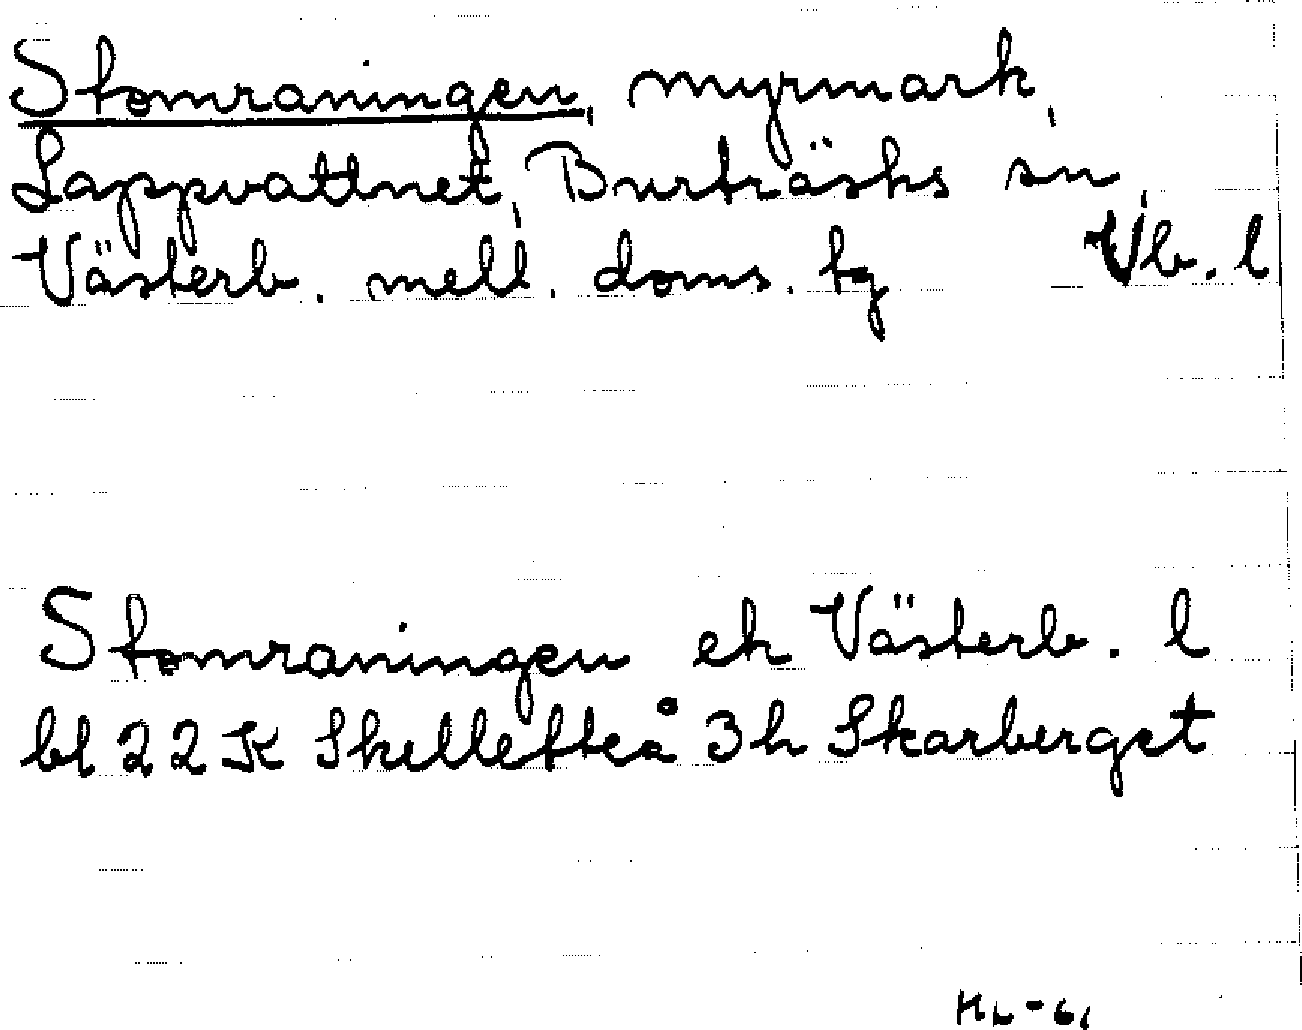 Stomraningen, myrmark,
Lappvattnet, Burträsks sn,
Västerb. mell. doms. tg Vb. l
Stomraningen ek Västerb. l
bl 22 K Skellefteå 3h Skarberget